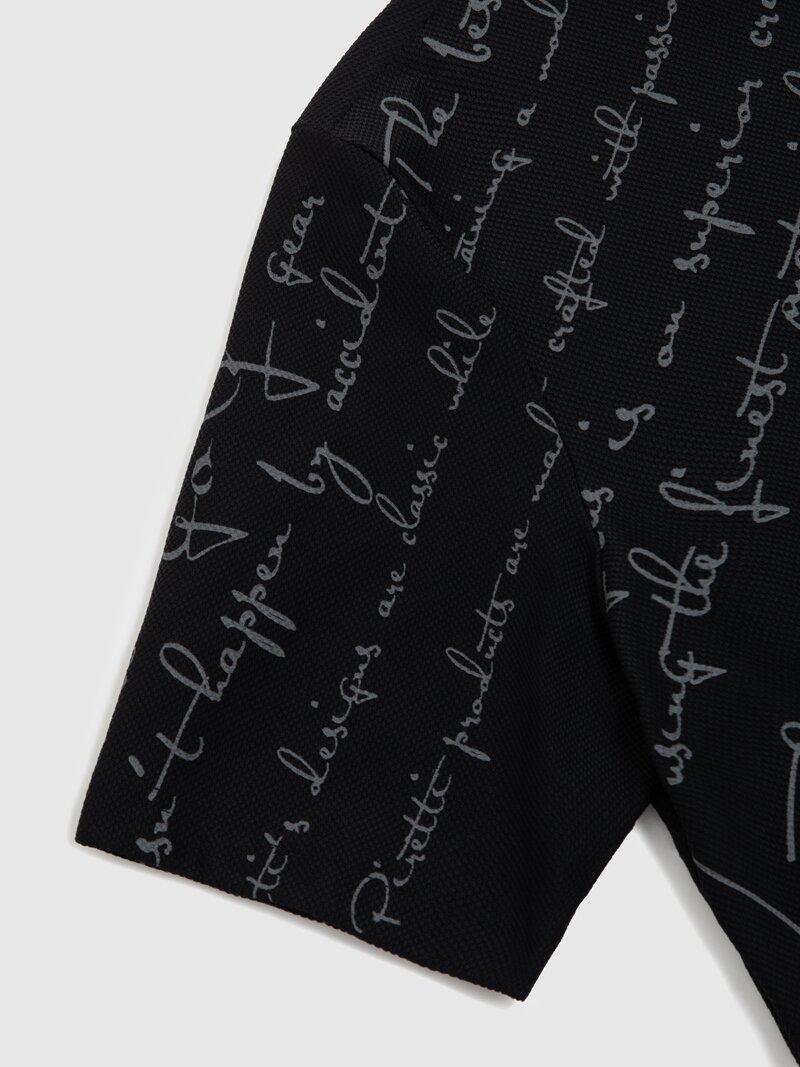 gear
sn't happen by accident. The bes
ti's designs are classic while aining a mod
Piretti products are mad crafted with passi
is an superior cra
using the finest